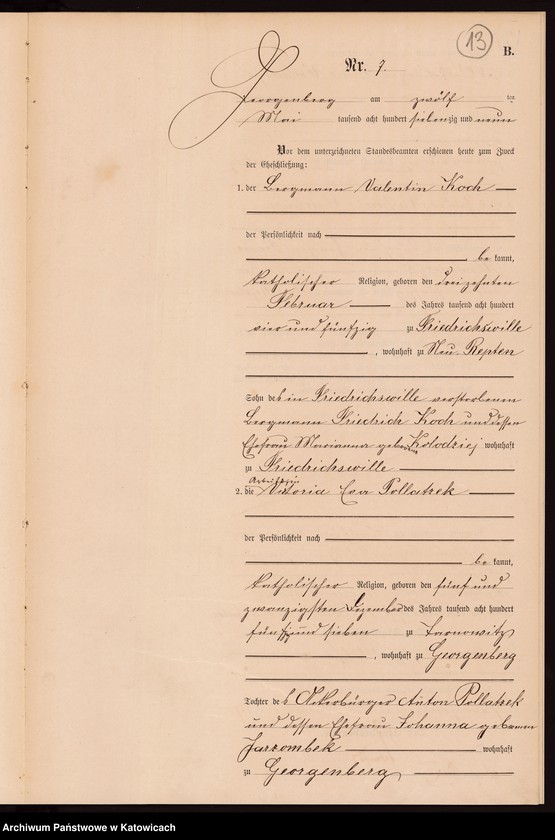 13
B.
Nr. 7.
Georgenberg am zwölf ten
Mai tausend acht hundert siebenzig und neun
Vor dem unterzeichneten Standesbeamten erschienen heute zum Zweck
der Eheschließung:
1. der Bergmann Valentin Koch
der Persönlichkeit nach
be kannt,
katholischer Religion, geboren den dreizehnten
Februar des Jahres tausend acht hundert
vier und fünfzig zu Friedrichswille
, wohnhaft zu Neu-Repten
Sohn des in Friedrichswille verstorbenen
Bergmann Friedrich Koch und dessen
Ehefrau Marianna geborene Kolodziej wohnhaft
zu Friedrichswille
Arbeiterin
2. die Victoria Eva Pollatzek
der Persönlichkeit nach
be kannt,
katholischer Religion, geboren den fünf und
zwanzigsten Dezember des Jahres tausend acht hundert
fünfzig und sieben zu Tarnowitz
, wohnhaft zu Georgenberg
Tochter des Ackerbürger Anton Pollatzek
und dessen Ehefrau Johanna geborenen
Jarzombek wohnhaft
zu Georgenberg
Archiwum Państwowe w Katowicach